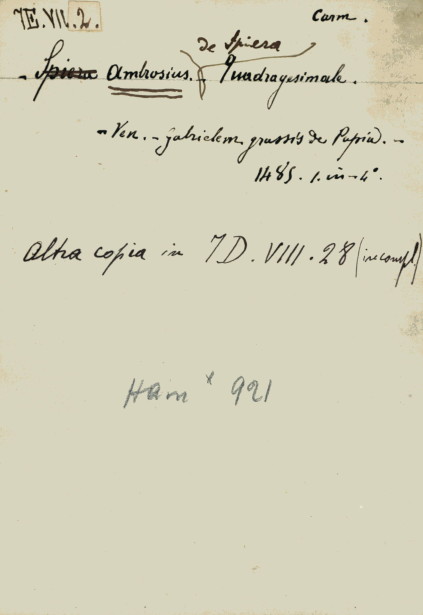 7E.VII.2.
Carm.
de Spiera
- Spiera Ambrosius. Quadragesimale.
- Ven. - Gabrielem grassis de Papia. -
1485. 1. in-4°.
altra copia in 7D.VIII.28 (incompl)
Ham * 921